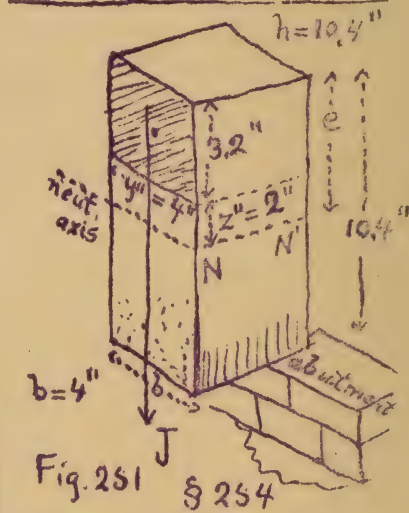 h=10.4"
3.2"
e
neut.
axis
y"=4"
z"=2"
N
N'
10.4"
b=4"
b
abutment
J
Fig. 251
§ 254